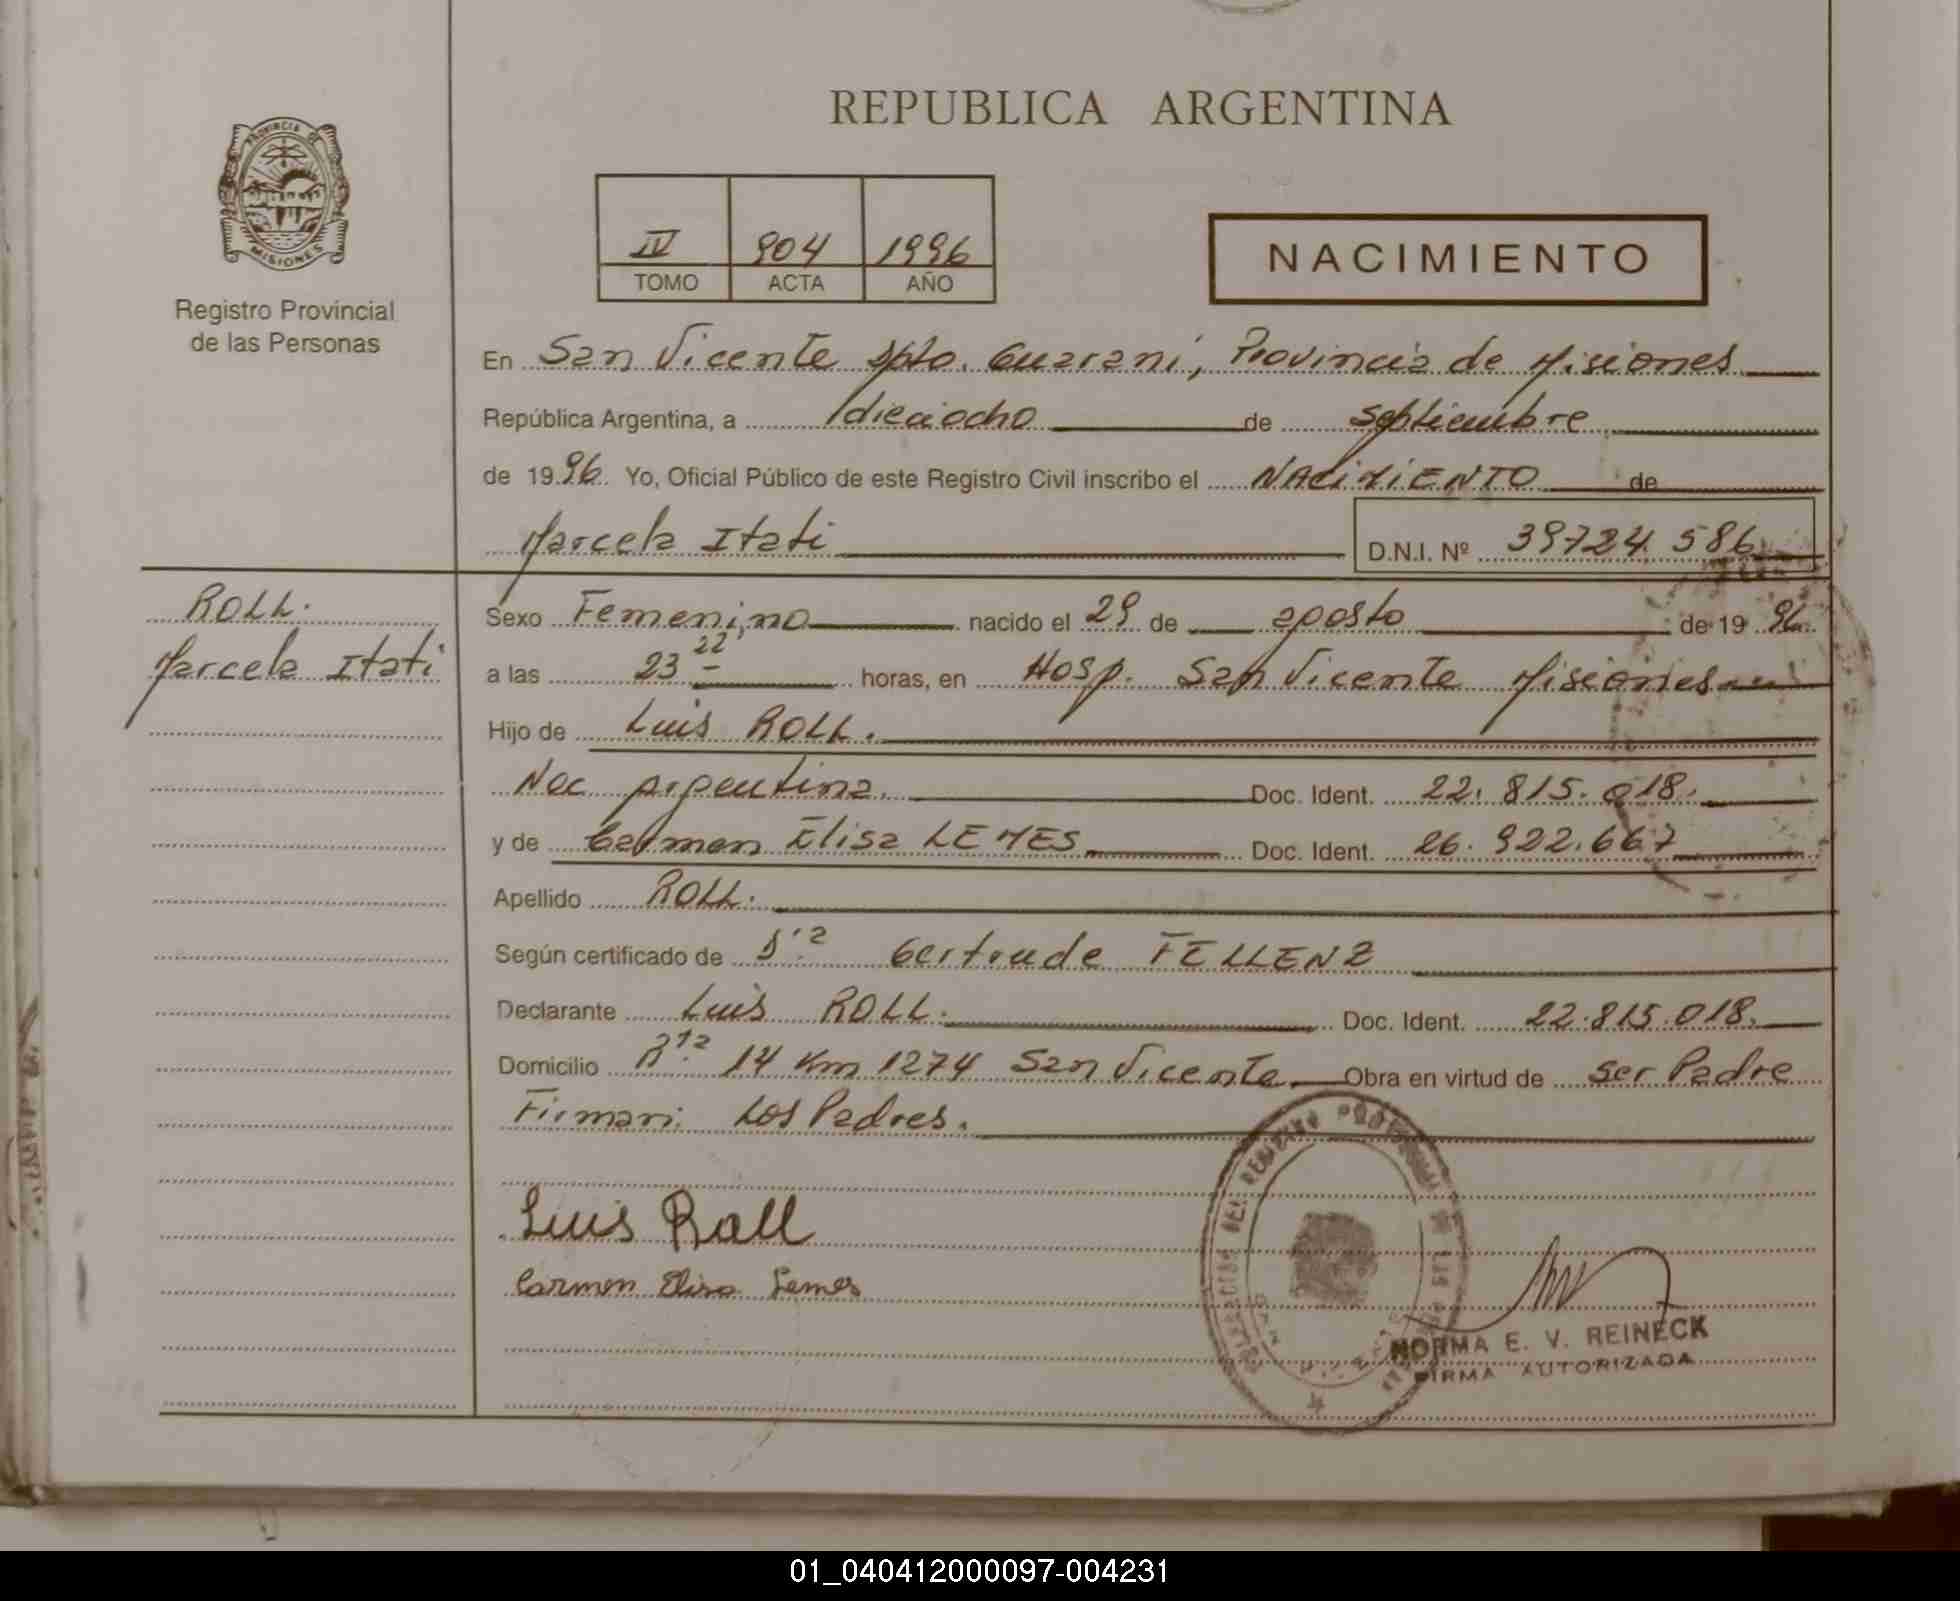 REPUBLICA ARGENTINA
PROVINCIA DE
MISIONES
Registro Provincial
de las Personas
IV 904 1996
TOMO ACTA AÑO
NACIMIENTO
En San Vicente Dpto. Guaraní, Provincia de Misiones
República Argentina, a dieciocho de septiembre
de 1996. Yo, Oficial Público de este Registro Civil inscribo el NACIMIENTO de
Marcela Itati D.N.I. Nº 39724 586
ROLL.
Marcela Itati
Sexo Femenino nacido el 29 de agosto de 19 96
a las 23 22 horas, en Hosp. San Vicente Misiones
Hijo de Luis ROLL.
Nac Argentina. Doc. Ident. 22.815.018.
y de Carmen Elisa LEMES Doc. Ident. 26.922.667
Apellido ROLL.
Según certificado de Dra Gertrude FELLENZ
Declarante Luis ROLL. Doc. Ident. 22.815.018.
Domicilio Rta 14 Km 1274 San Vicente Obra en virtud de ser Padre
Firman: Los Padres.
Luis Roll
Carmen Elisa Lemes
NORMA E. V. REINECK
FIRMA AUTORIZADA
01_040412000097-004231